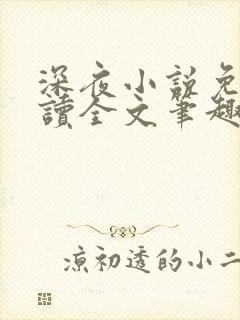 深夜小説免
讀全文筆趣
涼初透的小二